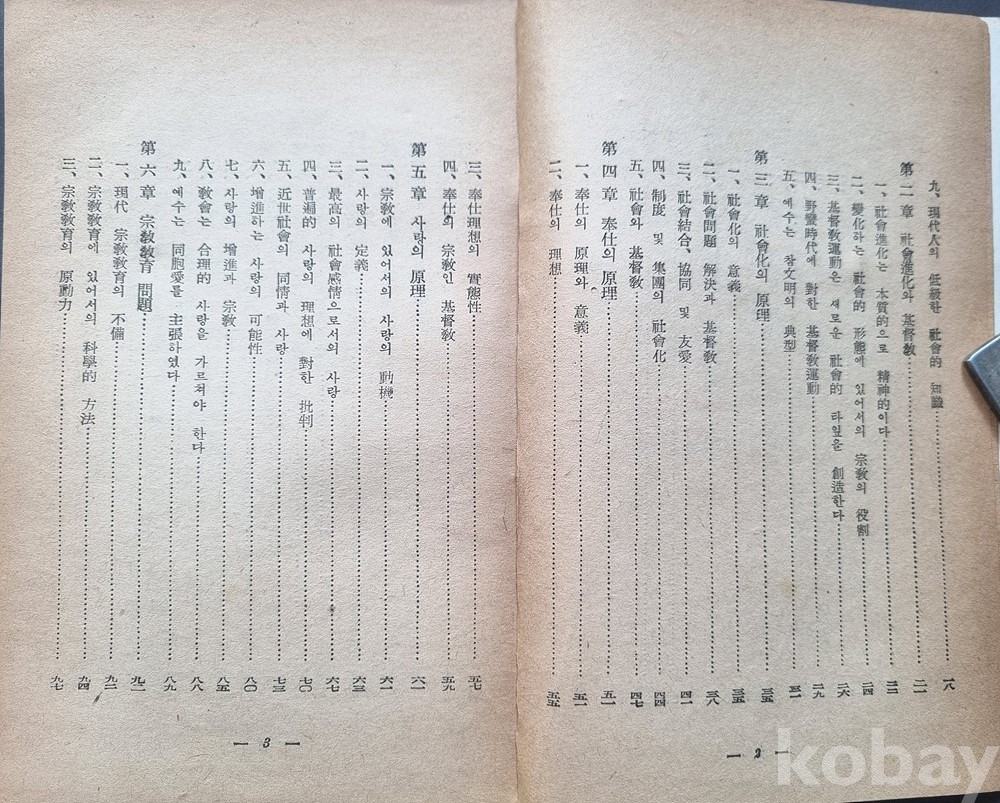 九、現代人의 低級한 社會的 知識 一八
第二章 社會進化와 基督敎 二一
一、社會進化는 本質的으로 精神的이다 二二
二、變化하는 社會的 形態에 있어서의 宗敎의 役割 二四
三、基督敎運動은 새로운 社會的 타잎을 創造한다 二六
四、野蠻時代에 對한 基督敎運動 二九
五、예수는 참文明의 典型 三一
第三章 社會化의 原理 三五
一、社會化의 意義 三五
二、社會問題 解決과 基督敎 三八
三、社會結合、協同 및 友愛 四一
四、制度 및 集團의 社會化 四四
五、社會와 基督敎 四七
第四章 奉仕의 原理 五一
一、奉仕의 原理와 意義 五一
二、奉仕의 理想 五五
— 2 —
三、奉仕理想의 實態性 五七
四、奉仕의 宗敎인 基督敎 五九
第五章 사랑의 原理 六一
一、宗敎에 있어서의 사랑의 動機 六一
二、사랑의 定義 六三
三、最高의 社會感情으로서의 사랑 六七
四、普遍的 사랑의 理想에 對한 批判 七〇
五、近世社會의 同情과 사랑 七三
六、增進하는 사랑의 可能性 八〇
七、사랑의 增進과 宗敎 八五
八、敎會는 合理的 사랑을 가르쳐야 한다 八八
九、예수는 同胞愛를 主張하였다 八九
第六章 宗敎敎育 問題 九一
一、現代 宗敎敎育의 不備 九二
二、宗敎敎育에 있어서의 科學的 方法 九四
三、宗敎敎育의 原動力 九七
— 3 —
kobay